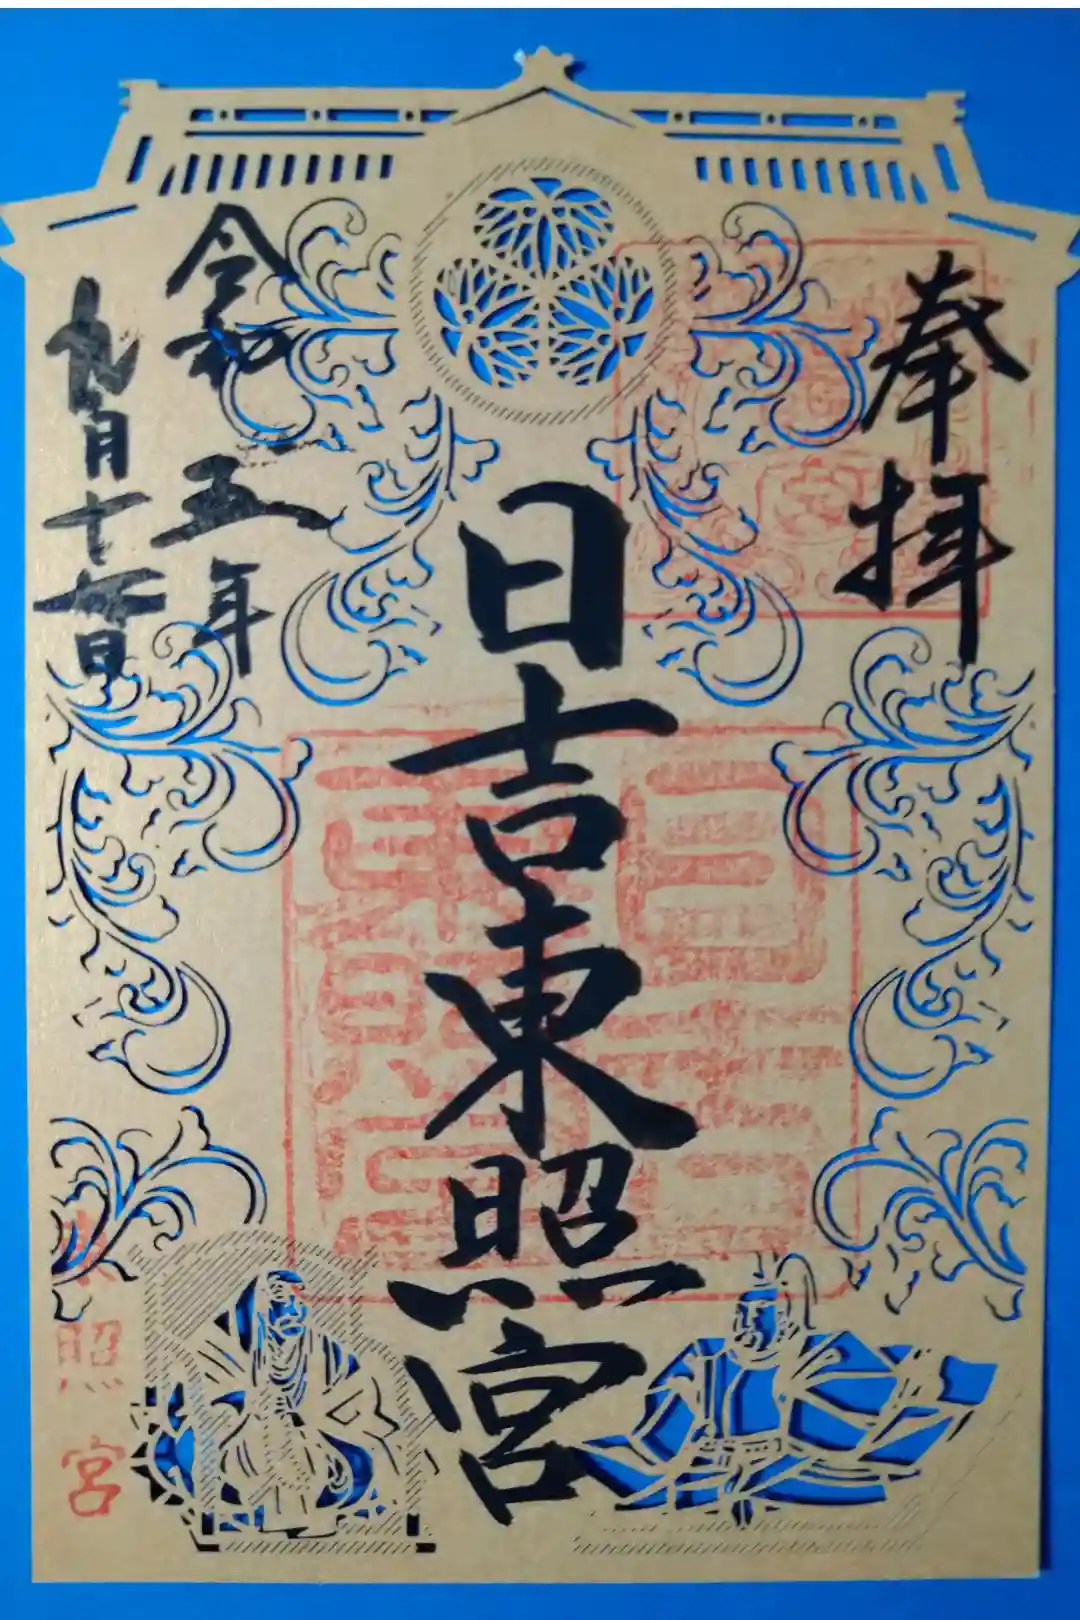 奉拝
日吉東照宮
令和五年
九月十六日
東照宮